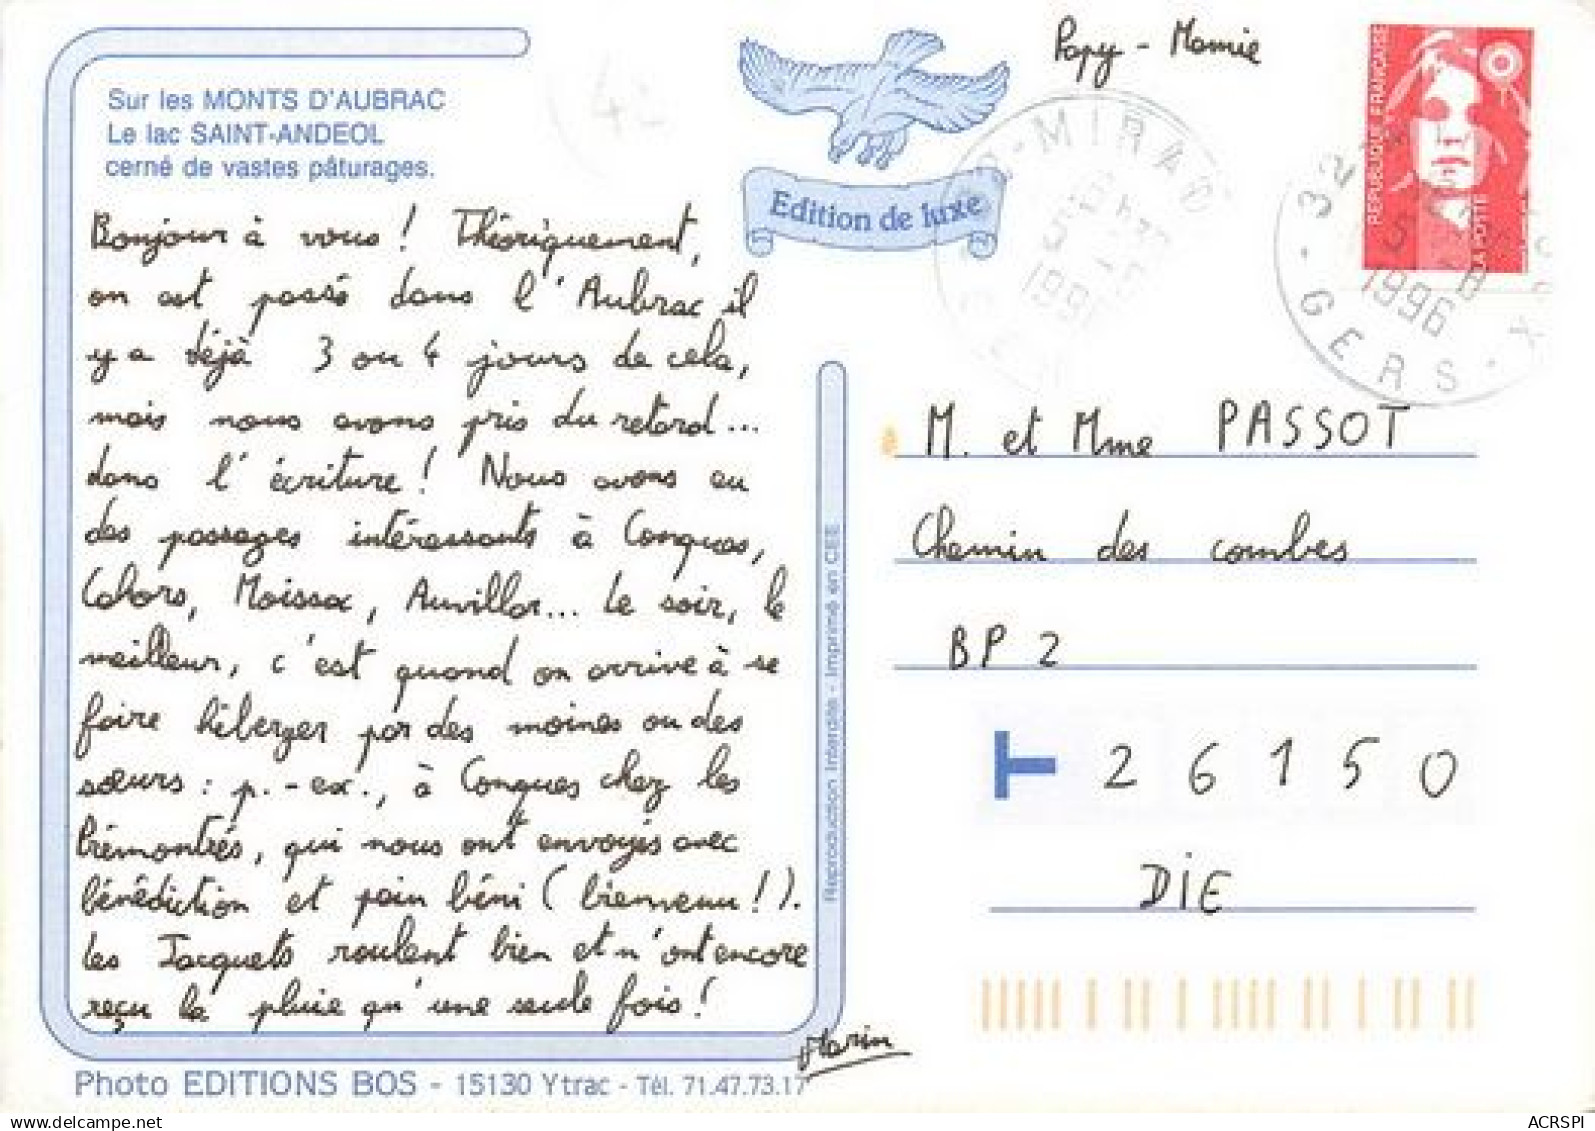 Papy - Mamie
Sur les MONTS D'AUBRAC
Le lac SAINT-ANDEOL
cerné de vastes pâturages.
Edition de luxe
REPUBLIQUE FRANÇAISE
LA POSTE
MIRA
1996
32
5
8
1996
GERS
Bonjour à vous ! Théoriquement,
on est passé dans l'Aubrac il
y a déjà 3 ou 4 jours de cela,
mais nous avons pris du retard...
dans l'écriture ! Nous avons eu
des passages intéressants à Conques,
Cahors, Moissac, Auvillar... Le soir, le
meilleur, c'est quand on arrive à se
faire héberger par des moines ou des
sœurs : p.-ex., à Conques chez les
Prémontrés, qui nous ont envoyés avec
bénédiction et pain béni (bienvenu !).
Les Jacquets roulent bien et n'ont encore
reçu la pluie qu'une seule fois !
Marin
Reproduction interdite - Imprimé en CEE
M. et Mme PASSOT
Chemin des combes
BP 2
26150
DIE
Photo EDITIONS BOS - 15130 Ytrac - Tél. 71.47.73.17
ACRSPI